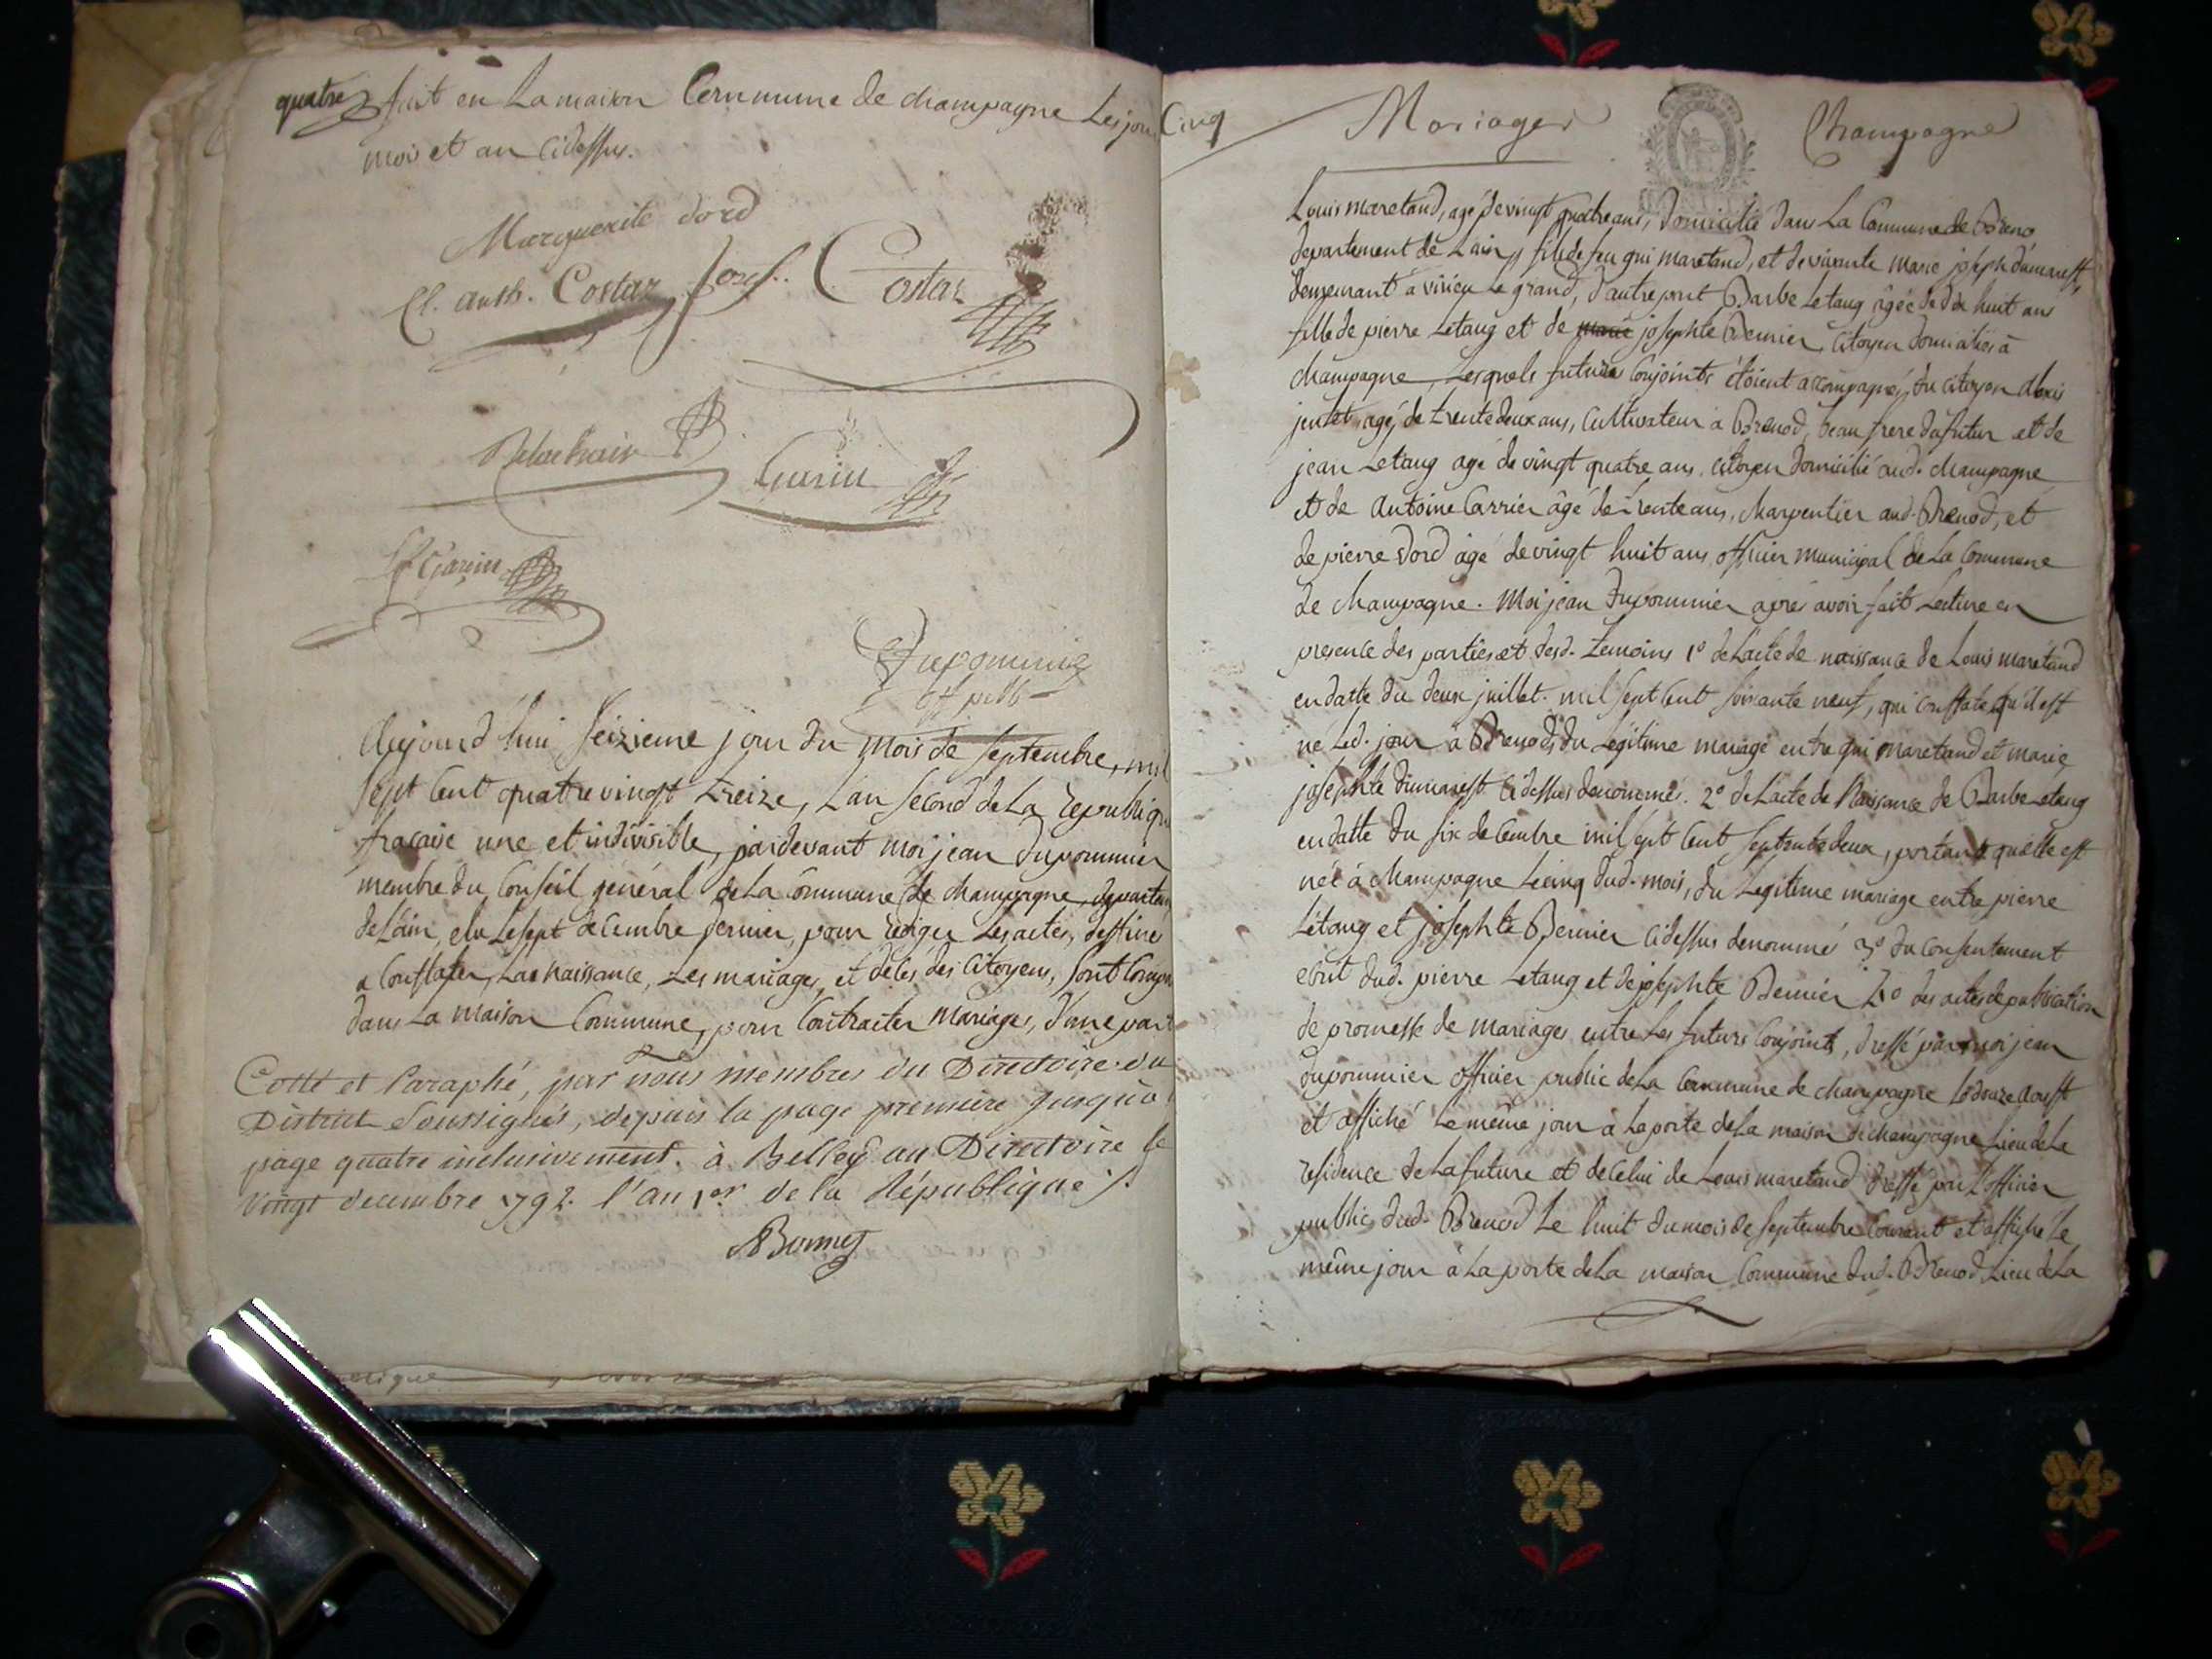 quatre
fait en La maison Commune de champagne Les jour
mois et an cidessus.
Marguerite dord
Cl. Anth. Costaz Josef. Costaz
Delachair
Guerin
Garin
Dupommier
off publ
Aujourd'hui seizieme jour du mois de septembre, mil
sept Cent quatre vingt treize, L'an second de La republique
fracaise une et indivisible, pardevant moi jean dupommier
membre du Conseil général de La Commune de champagne, departem
de L'ain, elu Le sept decembre dernier, pour rediger Les actes, destinés
a Constater, La naissance, Les mariages, et décès des Citoyens, sont Comp
dans La maison Commune, pour Contracter mariages, d'une part
Cotté et Paraphé, par nous membres du Directoire du
District Soussignés, depuis la page premiere jusqu'à
page quatre inclusivement. à Belley au Directoire le
vingt decembre 1792. l'an 1er de la République /.
Bonnet
Cinq
Mariages
Champagne
Louis maretand, agé de vingt quatre ans, domicilié dans La Commune de Breno
departement de L'ain, fils de feu gui maretand, et de vivante marie joseph dumarest,
demeurant a virieu Le grand, d'autre part Barbe Letang âgée de dix huit ans
fille de pierre Letang et de marie josephte Bernier, Citoyen domiciliés à
champagne, Lesquels futurs Conjoints étoient accompagnés, du citoyen alexis
jentet, agé de trente deux ans, Cultivateur a Brenod, beau frere du futur et de
jean Letang agé de vingt quatre ans, citoyen domicilié aud. champagne
et de Antoine Carrier âgé de trente ans, charpentier aud. Brenod, et
de pierre dord agé de vingt huit ans officier municipal de La Commune
de champagne. Moi jean dupommier après avoir fait Lecture en
presence des parties et desd. temoins 1o de L'acte de naissance de Louis maretand
en datte du deux juillet. mil sept Cent soixante neuf, qui Constate qu'il est
né Led. jour à Brenod, du Légitime mariage entre gui maretand et marie
josephte dumarest cidessus denommés. 2o de L'acte de Naissance de Barbe Letang
en datte du six decembre mil sept Cent septante deux, portant qu'elle est
née à champagne Le cinq dud. mois, du Legitime mariage entre pierre
Letang et josephte Bernier cidessus denommé 3o du consentement
dud. pierre Letang et de josephte Bernier 4o des actes de publication
de promesse de mariages entre Les futurs Conjoints, dressé par moi jean
dupommier officier public de La Commune de champagne Le douze aoust
et affiché Le même jour à La porte de La maison de champagne Lieu de La
residence de La future et de celui de Louis maretand dressé par L'officier
public dud. Brenod Le huit du mois de septembre Courant et affiche Le
même jour à La porte de La maison Commune dud. Brenod Lieu de La